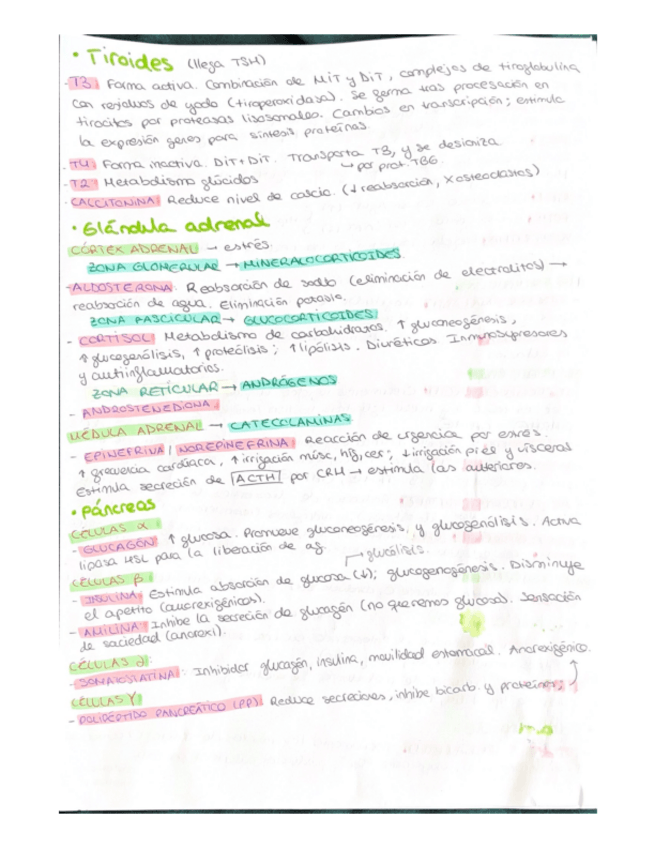 • Tiroides (llega TSH)
- T3: Forma activa. Combinación de MiT y DiT, complejos de tiroglobulina
con residuos de yodo (tiroperoxidasa). Se forma tras procesación en
tirocitos por proteasas lisosomales. Cambios en transcripción; estimula
la expresión genes para síntesis proteínas.
- T4: Forma inactiva. DiT + DiT. Transporta T3, y se desioniza
↳ por prot. TBG.
- T2: Metabolismo glúcidos
- CALCITONINA: Reduce nivel de calcio. (↓ reabsorción, X osteoclastos)
• Glándula adrenal
CÓRTEX ADRENAL → estrés.
ZONA GLOMERULAR → MINERALOCORTICOIDES.
- ALDOSTERONA: Reabsorción de sodio (eliminación de electrolitos) →
reabsorción de agua. Eliminación potasio.
ZONA FASCICULAR → GLUCOCORTICOIDES:
- CORTISOL: Metabolismo de carbohidratos. ↑ gluconeogénesis,
↑ glucogenólisis, ↑ proteólisis; ↑ lipólisis. Diuréticos Inmunosupresores
y antiinflamatorios.
ZONA RETÍCULAR → ANDRÓGENOS
- ANDROSTENEDIONA.
MÉDULA ADRENAL → CATECOLAMINAS.
- EPINEFRINA / NOREPINEFRINA: Reacción de urgencia por estrés.
↑ frecuencia cardíaca, ↑ irrigación músc, híg, cer; ↓ irrigación piel y vísceras
Estimula secreción de ACTH por CRH → estimula las anteriores.
• Páncreas
CÉLULAS α:
- GLUCAGÓN: ↑ glucosa. Promueve gluconeogénesis, y glucogenólisis. Activa
lipasa HSL para la liberación de ag.
→ glucólisis.
CÉLULAS β:
- INSULINA: Estimula absorción de glucosa (↓); glucogenogénesis. Disminuye
el apetito (anorexigénicos).
- AMILINA: Inhibe la secreción de glucagón (no queremos glucosa). Sensación
de saciedad (anorexi).
CÉLULAS δ:
- SOMATOSTATINA: Inhibidor glucagón, insulina, movilidad estomacal. Anorexigénico.
CÉLULAS γ:
- POLIPÉPTIDO PANCREÁTICO (PP): Reduce secreciones, inhibe bicarb. y proteínas;